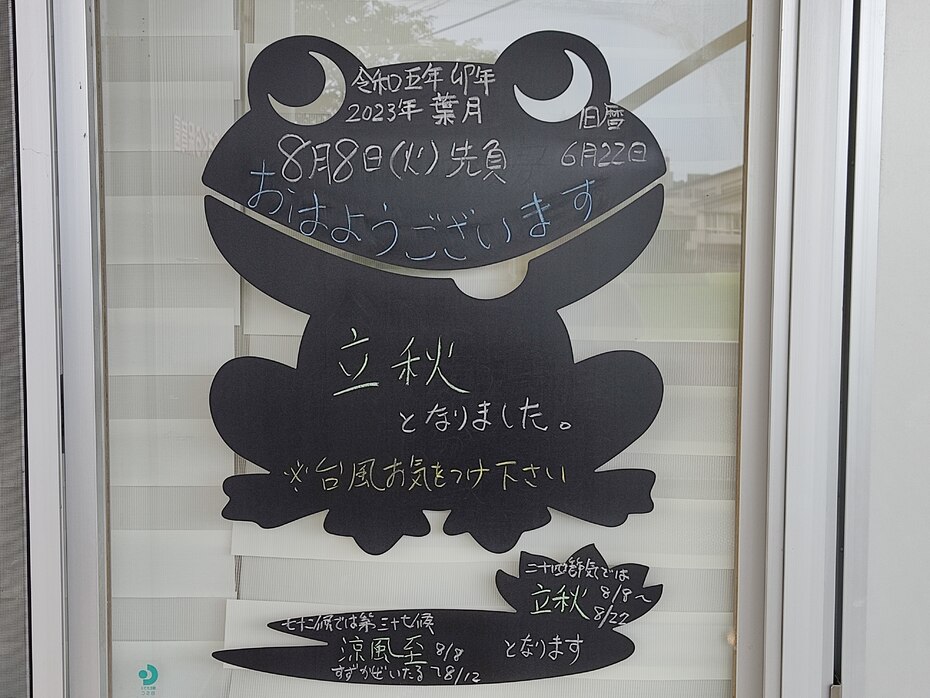 令和五年 卯年
2023年 葉月
旧暦
8月8日(火)先負
6月22日
おはようございます
立秋
となりました。
※台風お気をつけ下さい
二十四節気では
立秋 8/8〜
8/22
七十二候では第三十七候
涼風至 8/8
となります
すずかぜいたる 〜8/12